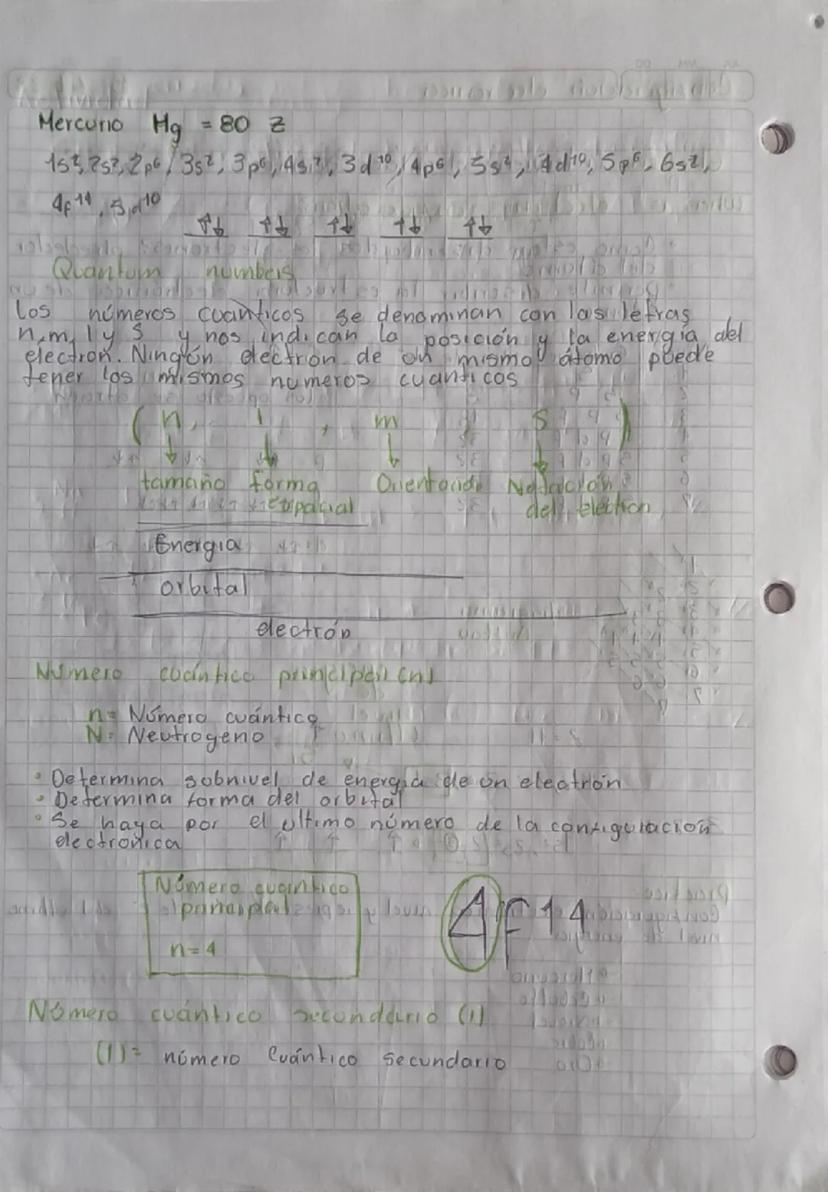 Mercurio Hg = 80 Z
1s², 2s², 2p⁶, 3s², 3p⁶, 4s², 3d¹⁰, 4p⁶, 5s², 4d¹⁰, 5p⁶, 6s²,
4f¹⁴, 5d¹⁰
↑↓ ↑↓ ↑↓ ↑↓ ↑↓
Quantum numbers
Los números cuánticos se denominan con las letras
n, m, l y s y nos indican la posición y la energía del
electron. Ningún electrón de un mismo átomo puede
tener los mismos numeros cuanticos
( n, l , m , s )
↓ ↓ ↓ ↓
tamaño forma Orientación
espacial del electron
Energia
orbital
electrón
Número cuántico principal (n)
n = Número cuántico
N = Neutrogeno
• Determina subnivel de energía de un electrón
• Determina forma del orbital
• Se haya por el ultimo número de la configuración
electronica
Número cuantico
principal
n = 4
4F14
Número cuántico secundario (l)
(l) = número cuántico secundario